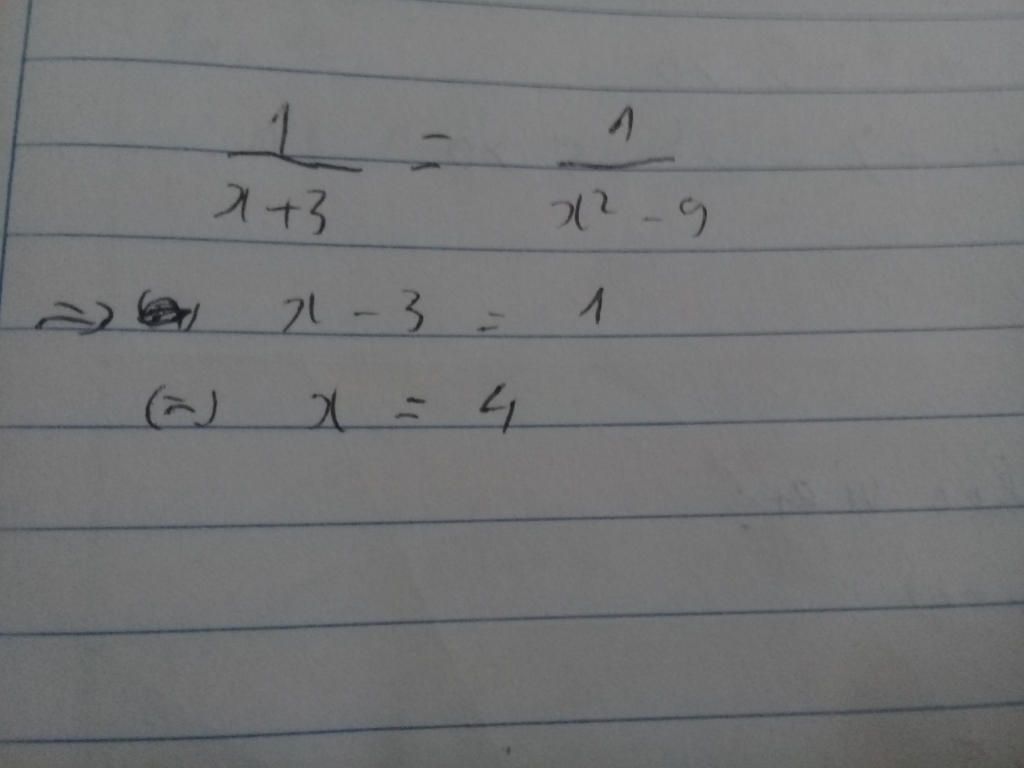 1/(x+3) = 1/(x² - 9)
=> x - 3 = 1
(=) x = 4